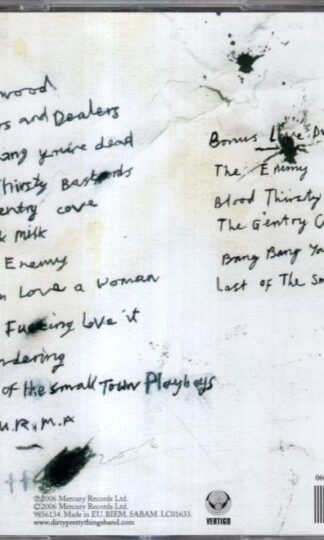 wood
rs and Dealers
ang you're dead
Thirsty Bastards
entry cove
k Milk
Enemy
n Love a Woman
Fucking Love it
ndering
of the small Town Playboys
U.R.M.A
Bonus Live D
The Enemy
Blood Thirsty
The Gentry C
Bang Bang Yo
Last of The Sm
℗2006 Mercury Records Ltd.
©2006 Mercury Records Ltd.
9856134. Made in E.U. BIEM, SABAM. LC01633.
www.dirtyprettythingsband.com
VERTIGO
06